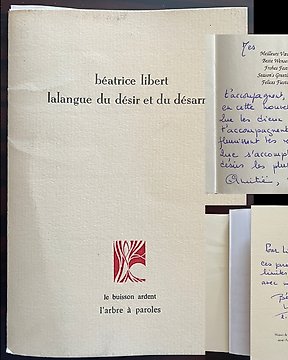 béatrice libert
lalangue du désir et du désarr
le buisson ardent
l'arbre à paroles
Mes
Meilleurs Vœ
Beste Wense
Frohes Fest
Season's Greetin
Felices Fiesta
t'accompagnent,
en cette nouvel
que les dieux
t'accompagnent
fleurissent tes r
que s'accompl
désirs les plu
Amitié,
Pour Li
ces pa
limites
avec